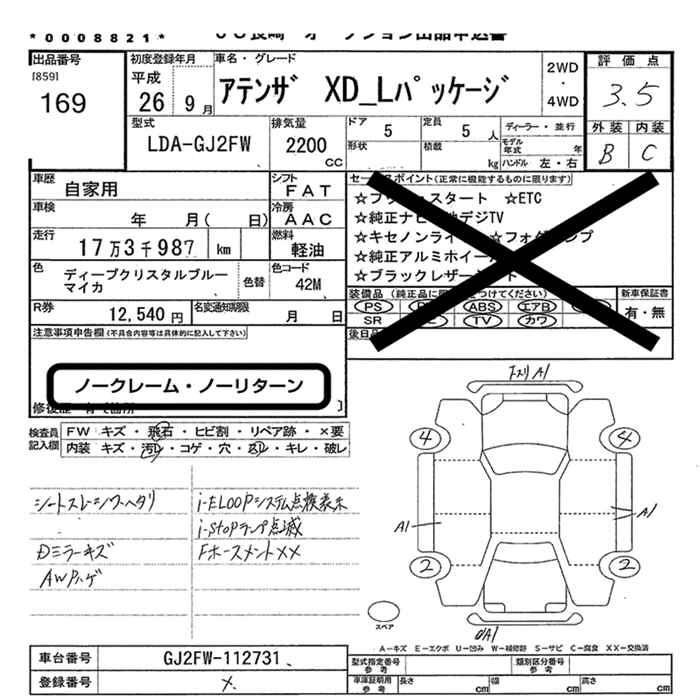 *0008821*
出品番号
[859]
169
初度登録年月
平成
26 9月
車名・グレード
アテンザ XD_Lパッケージ
2WD
・
4WD
評価点
3.5
外装 内装
B C
型式
LDA-GJ2FW
排気量
2200
CC
ドア
5
定員
5 人
形状
積載
kg
ディーラー・並行
モデル
年式 年
ハンドル 左・右
車歴
自家用
シフト
FAT
車検
年 月( 日)
冷房
AAC
走行
17万3千987 km
燃料
軽油
色
ディープクリスタルブルー
マイカ
色替
色コード
42M
R券
12,540円
名変通知期限
月 日
セールスポイント(正常に機能するものに限ります)
スタート ☆ETC
☆純正ナビ 地デジTV
☆キセノンライ ☆フォグランプ
☆純正アルミホイール
☆ブラックレザーシート
装備品(純正品に限
つけてください)
PS ABS エアB
SR TV カワ
新車保証書
有・無
後日
注意事項申告欄(不具合内容等は具体的に記入して下さい)
ノークレーム・ノーリターン
検査員
記入欄
FW キズ・飛石・ヒビ割・リペア跡・×要
内装 キズ・汚レ・コゲ・穴・凹レ・キレ・破レ
シートスレ シワ ヘタリ
i-ELOOPシステム点検表示
i-stopランプ点滅
Dミラーキズ
Fホースメント××
AWハゲ
A1
4 4
A1 A1
2 2
スペア
A1
A-キズ E-エクボ U-凹み W-補修跡 S-サビ C-腐食 XX-交換済
車台番号
GJ2FW-112731
登録番号
×
型式指定番号
参考
類別区分番号
参考
車庫証明用
参考
長さ cm
幅 cm
高さ cm